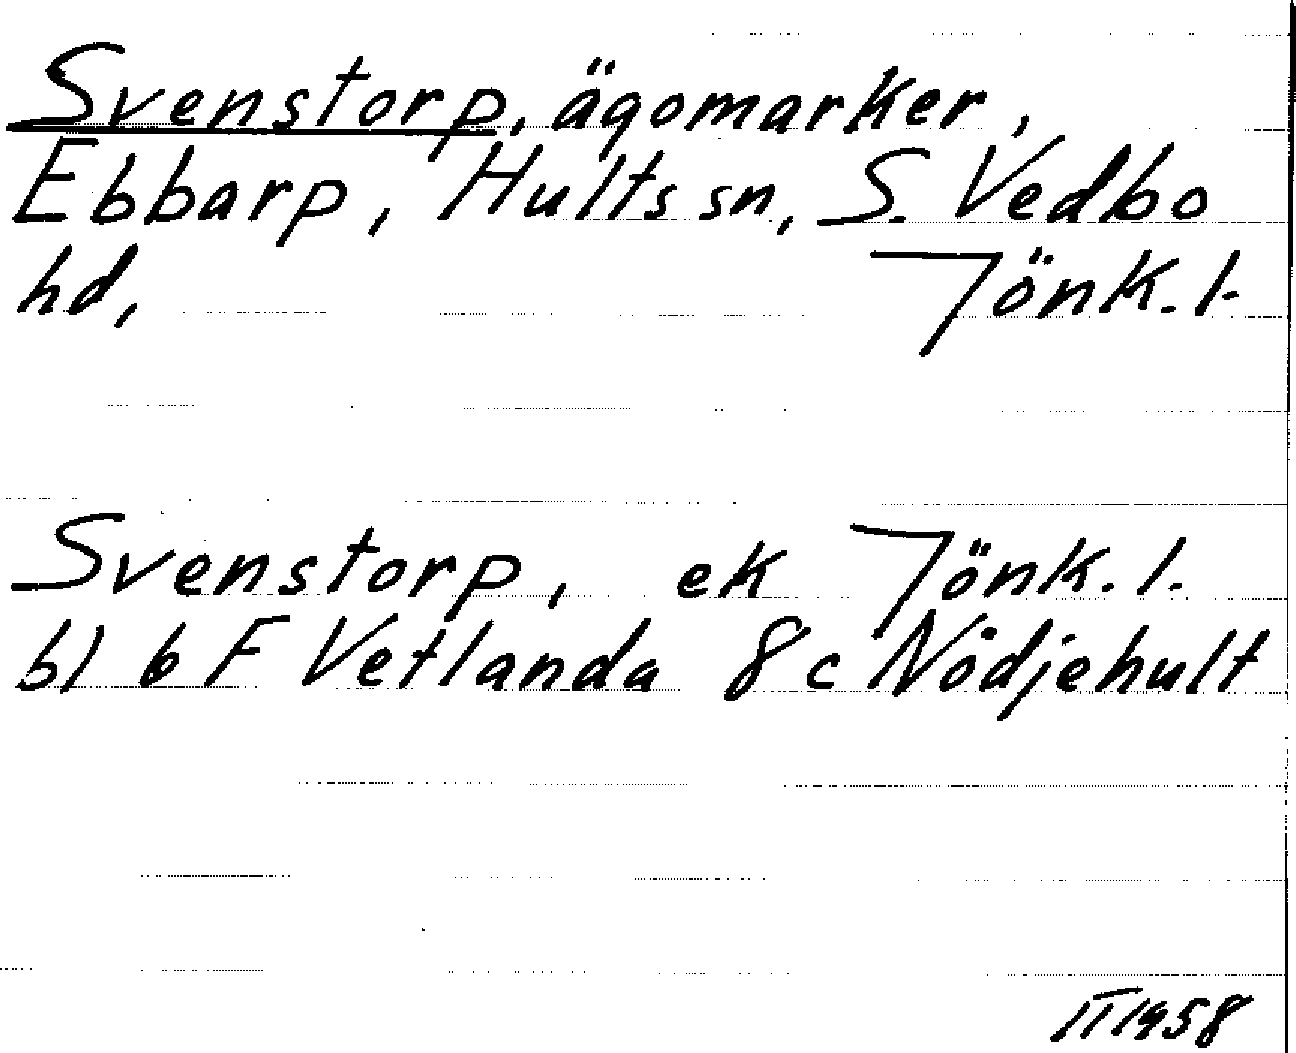 Svenstorp, ägomarker,
Ebbarp, Hults sn, S. Vedbo
hd, Jönk. l.
Svenstorp, ek Jönk. l.
b) 6 F Vetlanda 8 c Nödjehult
II 1958